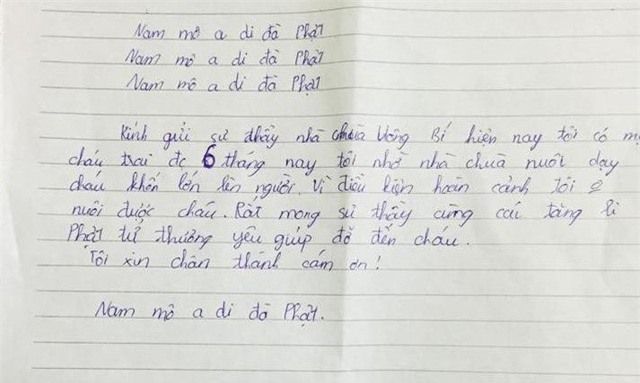 Nam mô a di đà Phật
Nam mô a di đà Phật
Nam mô a di đà Phật
Kính gửi sư thầy nhà chùa Uông Bí hiện nay tôi có mộ
cháu trai đc 6 thang nay tôi nhờ nhà chuà nuôi dạy
cháu khôn lớn lên người. Vì điều kiện hoàn cảnh tôi
nuôi được cháu. Rất mong sư thầy cùng các tăng li
Phật tử thương yêu giúp đỡ đến cháu.
Tôi xin chân thánh cám ơn!
Nam mô a di đà Phật.